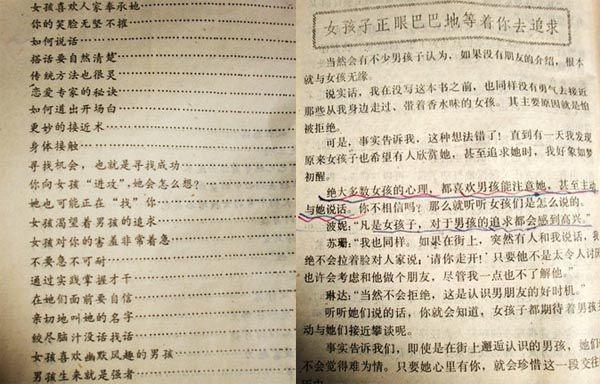 女孩喜欢人家奉承她
你的笑脸无坚不摧
如何说话
搭话要自然清楚
传统方法也很灵
恋爱专家的秘诀
如何道出开场白
更妙的接近术
身体接触
寻找机会，也就是寻找成功
你向女孩“进攻”，她会怎么想？
她也可能正在“找”你
女孩渴望着男孩的追求
女孩对你的害羞非常着急
不要急不可耐
通过实践掌握才干
在她们面前要自信
亲切地叫她的名字
绞尽脑汁没话找话
女孩喜欢幽默风趣的男孩
男孩生来就是强者
女孩子正眼巴巴地等着你去追求
当然会有不少男孩子认为，如果没有朋友的介绍，根本
就与女孩无缘。
说实话，我在没写这本书之前，也同样没有勇气去接近
那些从我身边走过、带着香水味的女孩。其主要原因就是怕
被拒绝。
可是，事实告诉我，这种想法错了！直到有一天我发现
原来女孩子也希望有人欣赏她，甚至追求她时，我好象如梦
初醒。
绝大多数女孩的心理，都喜欢男孩能注意她，甚至主动
与她说话。你不相信吗？那么就听听女孩们是怎么说的。
波妮：“凡是女孩子，对于男孩的追求都会感到高兴。”
苏珊：“我也同样。如果在街上，突然有人和我说话，我
绝不会拉着脸对人家说，‘请你走开！’只要他不是太令人讨厌
也许会考虑和他做个朋友，尽管我一点也不了解他。”
琳达：“当然不会拒绝，这是认识男朋友的好时机。”
听听她们说的话，你就会知道，女孩子都期待着男孩
动与她们接近攀谈呢。
事实告诉我们，即使是在街上邂逅认识的男孩，她们
不会觉得难为情。只要她心里有你，就会珍惜这一段交往